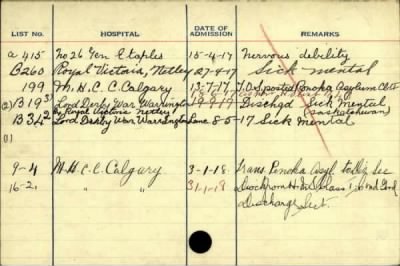 LIST NO. HOSPITAL DATE OF ADMISSION REMARKS
a 415 No 26 Gen Etaples 15-4-17 nervous debility
B260 Royal Victoria, Netley 27-4-17 Sick mental
199 M.H.C.C. Calgary 13-7-17 T.O.S. posted Ponoka Asylum
(2) B19 3) Lord Derby War Warrington 19-9-17 Dischgd Sick Mental
Royal Victoria Netley (Saskatchewan)
B34 2 Lord Derby War Warrington 8-5-17 Sick mental
(1)
9-4 M.H.C.C. Calgary 3-1-18 Trans. Ponoka Asyl. to
16-2 " " 31-1-18 Class
Discharge Sect.